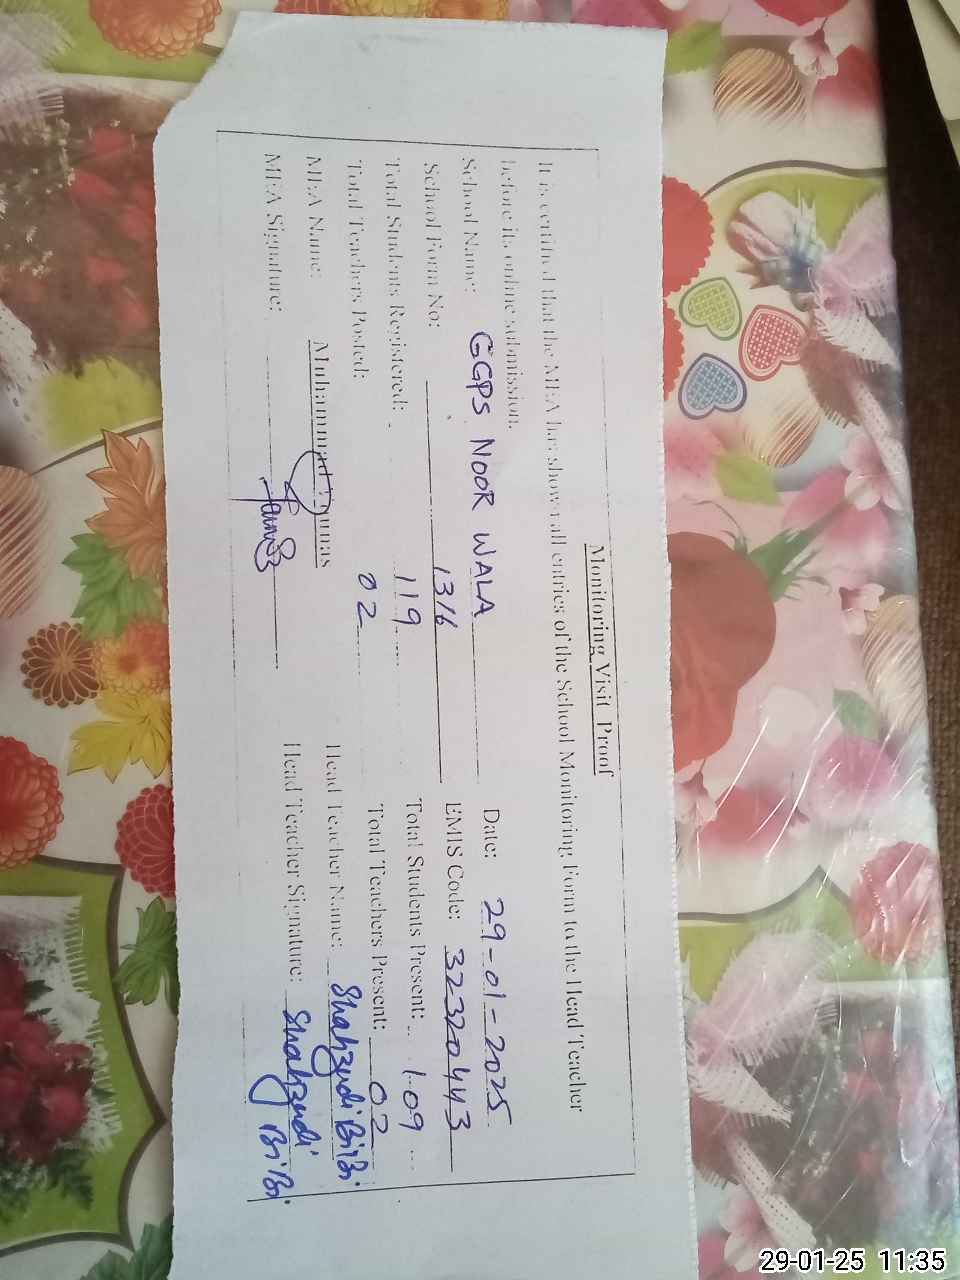 Monitoring Visit Proof
It is certified that the MEA has shown all entries of the School Monitoring Form to the Head Teacher
before its online submission.
School Name: GGPS NOOR WALA Date: 29-01-2025
School Form No: 1316 EMIS Code: 32320443
Total Students Registered: 119 Total Students Present: 109
Total Teachers Posted: 02 Total Teachers Present: 02
MEA Name: Muhammad Younas Head Teacher Name: Shahzadi BiBi
MEA Signature: Head Teacher Signature: Shahzadi BiBi
29-01-25 11:35